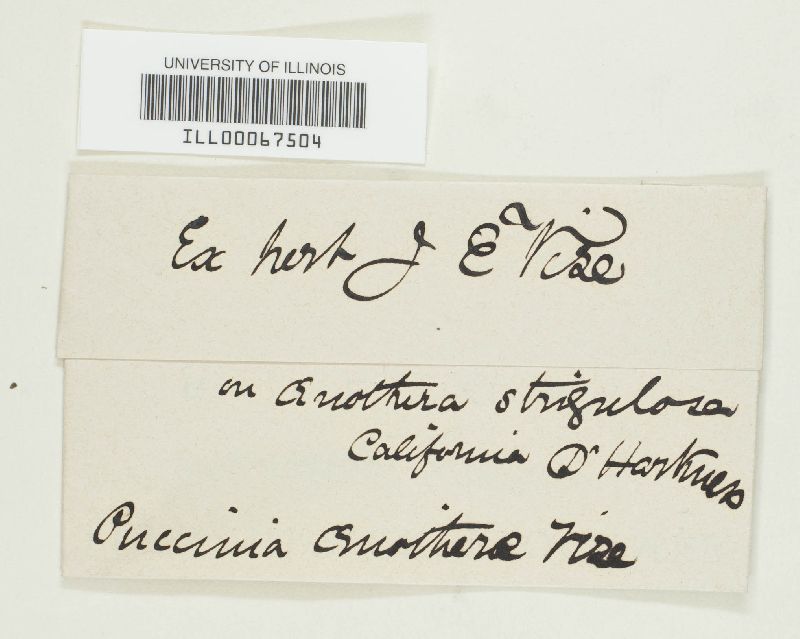 UNIVERSITY OF ILLINOIS
ILL00067504
Ex herb J E Vize
on Œnothera strigulosa
California Dr Harkness
Puccinia Œnotheræ Vize